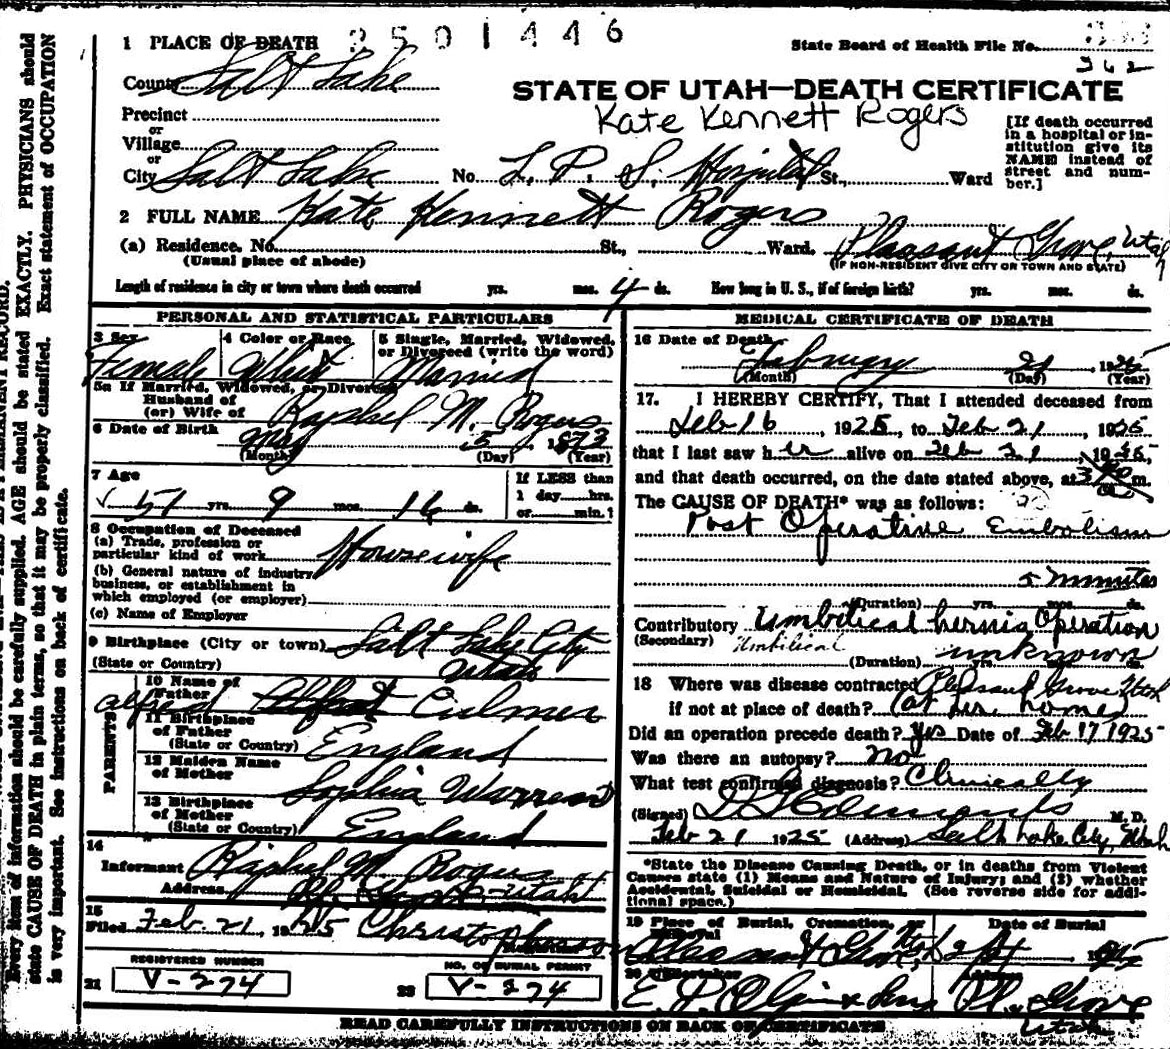 1 PLACE OF DEATH 2501446
State Board of Health File No.
362
County Salt Lake
STATE OF UTAH—DEATH CERTIFICATE
Kate Kennett Rogers
Precinct
or
Village
or
City Salt Lake No. L. D. S. Hospital St., Ward
[If death occurred
in a hospital or in-
stitution give its
NAME instead of
street and num-
ber.]
2 FULL NAME Kate Kennett Rogers
(a) Residence. No. St., Ward. Pleasant Grove, Utah
(Usual place of abode)
(IF NON-RESIDENT GIVE CITY OR TOWN AND STATE)
Length of residence in city or town where death occurred yrs. mos. 4 ds. How long in U. S., if of foreign birth? yrs. mos. ds.
PERSONAL AND STATISTICAL PARTICULARS
3 Sex
Female
4 Color or Race
White
5 Single, Married, Widowed,
or Divorced (write the word)
Married
5a If Married, Widowed, or Divorced
Husband of
(or) Wife of Raphel M. Rogers
6 Date of Birth
May 5 1873
(Month) (Day) (Year)
7 Age
51 yrs. 9 mos. 16 ds.
If LESS than
1 day hrs.
or min.?
8 Occupation of Deceased
(a) Trade, profession or
particular kind of work Housewife
(b) General nature of industry
business, or establishment in
which employed (or employer)
(c) Name of Employer
9 Birthplace (City or town) Salt Lake City
(State or Country) Utah
PARENTS
10 Name of
Father alfred Culmer
11 Birthplace
of Father
(State or Country) England
12 Maiden Name
of Mother Sophia Warren
13 Birthplace
of Mother
(State or Country) England
14
Informant Raphel M. Rogers
Address Pl. Grove Utah
15
Filed Feb. 21, 1925 Christopherson
REGISTERED NUMBER
21 V-274
NO. OF BURIAL PERMIT
22 V-274
MEDICAL CERTIFICATE OF DEATH
16 Date of Death
February 21, 1925
(Month) (Day) (Year)
17. I HEREBY CERTIFY, That I attended deceased from
Feb 16, 1925, to Feb 21, 1925
that I last saw her alive on Feb 21, 1925,
and that death occurred, on the date stated above, at m.
The CAUSE OF DEATH* was as follows:
Post Operative Embolism
5 minutes
(Duration) yrs. mos. ds.
Contributory Umbilical hernia Operation
(Secondary) Umbilical
(Duration) unknown yrs. mos. ds.
18 Where was disease contracted Pleasant Grove Utah
if not at place of death? (at her home)
Did an operation precede death? Yes Date of Feb 17 1925
Was there an autopsy? No
What test confirmed diagnosis? Clinically
(Signed) M. D.
Feb 21 1925 (Address) Salt Lake City, Utah
*State the Disease Causing Death, or in deaths from Violent
Causes state (1) Means and Nature of Injury; and (2) whether
Accidental, Suicidal or Homicidal. (See reverse side for addi-
tional space.)
19 Place of Burial, Cremation, or
Removal
Pleasant Grove,
Date of Burial
20 Undertaker
Address
E. D. Olpin & Sons Pl. Grove
Utah
READ CAREFULLY INSTRUCTIONS ON BACK OF CERTIFICATE
Every item of information should be carefully supplied. AGE should be stated EXACTLY. PHYSICIANS should
state CAUSE OF DEATH in plain terms, so that it may be properly classified. Exact statement of OCCUPATION
is very important. See instructions on back of certificate.